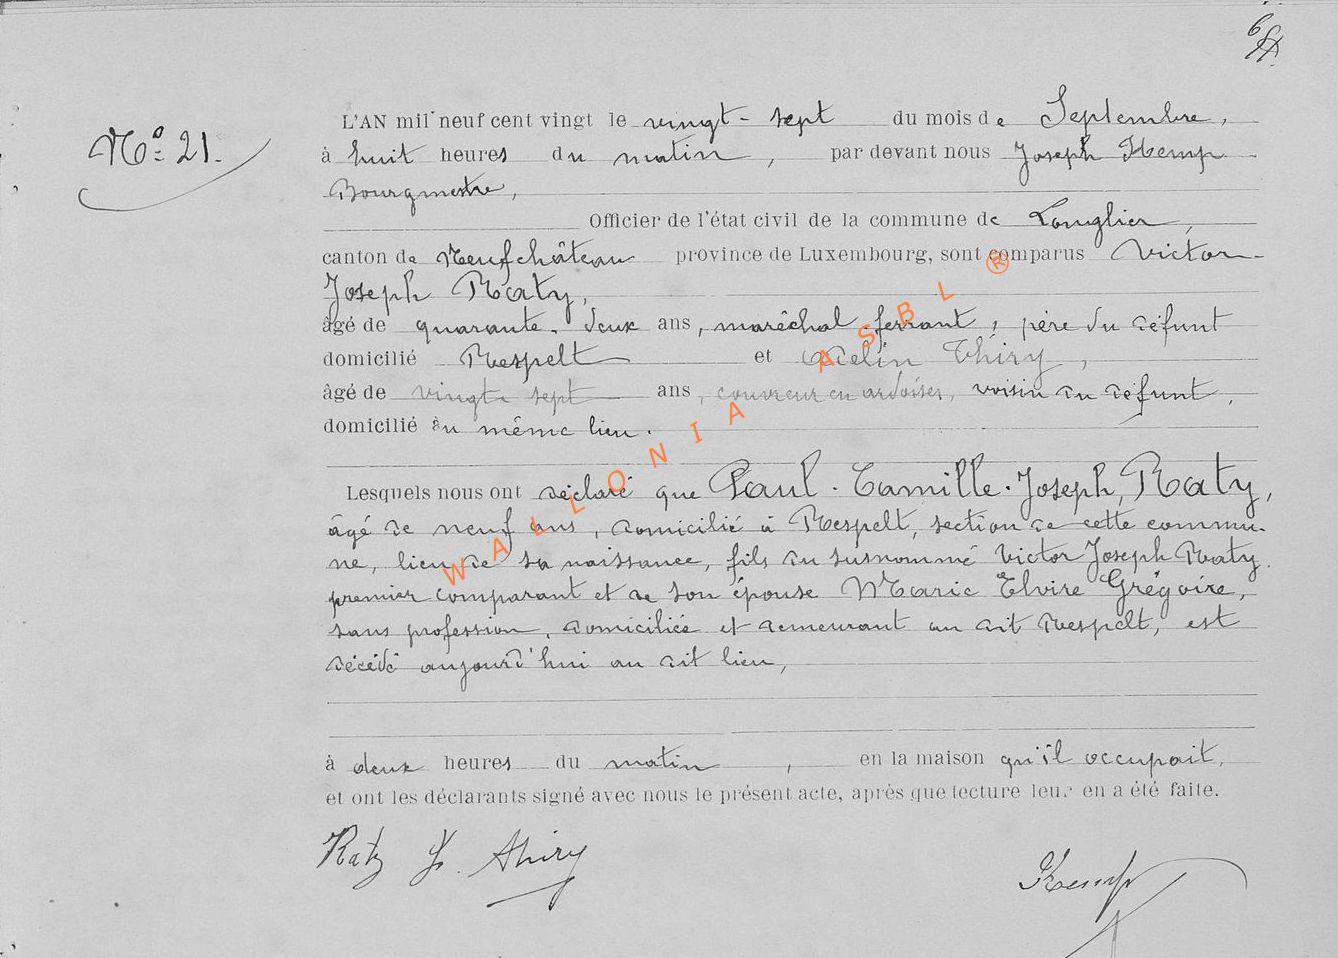 Nº 21.
L'AN mil neuf cent vingt le vingt-sept du mois de Septembre,
à huit heures du matin, par devant nous Joseph Kemp
Bourgmestre,
Officier de l'état civil de la commune de Longlier,
canton de Neufchâteau province de Luxembourg, sont comparus Victor-
Joseph Raty,
âgé de quarante-deux ans, maréchal-ferrant, père du défunt
domicilié Respelt et Adelin Thiry,
âgé de vingt-sept ans, couvreur en ardoises, voisin du défunt,
domicilié au même lieu.
Lesquels nous ont déclaré que Paul-Camille-Joseph, Raty,
âgé de neuf ans, domicilié à Respelt, section de cette commu-
ne, lieu de sa naissance, fils du susnommé Victor Joseph Raty
premier comparant et de son épouse Marie Elvire Grégoire,
sans profession, domiciliée et demeurant au dit Respelt, est
décédé aujourd'hui au dit lieu,
à deux heures du matin, en la maison qu'il occupait,
et ont les déclarants signé avec nous le présent acte, après que lecture leur en a été faite.
Raty Thiry Kemp
WALLONIA ASBL ®